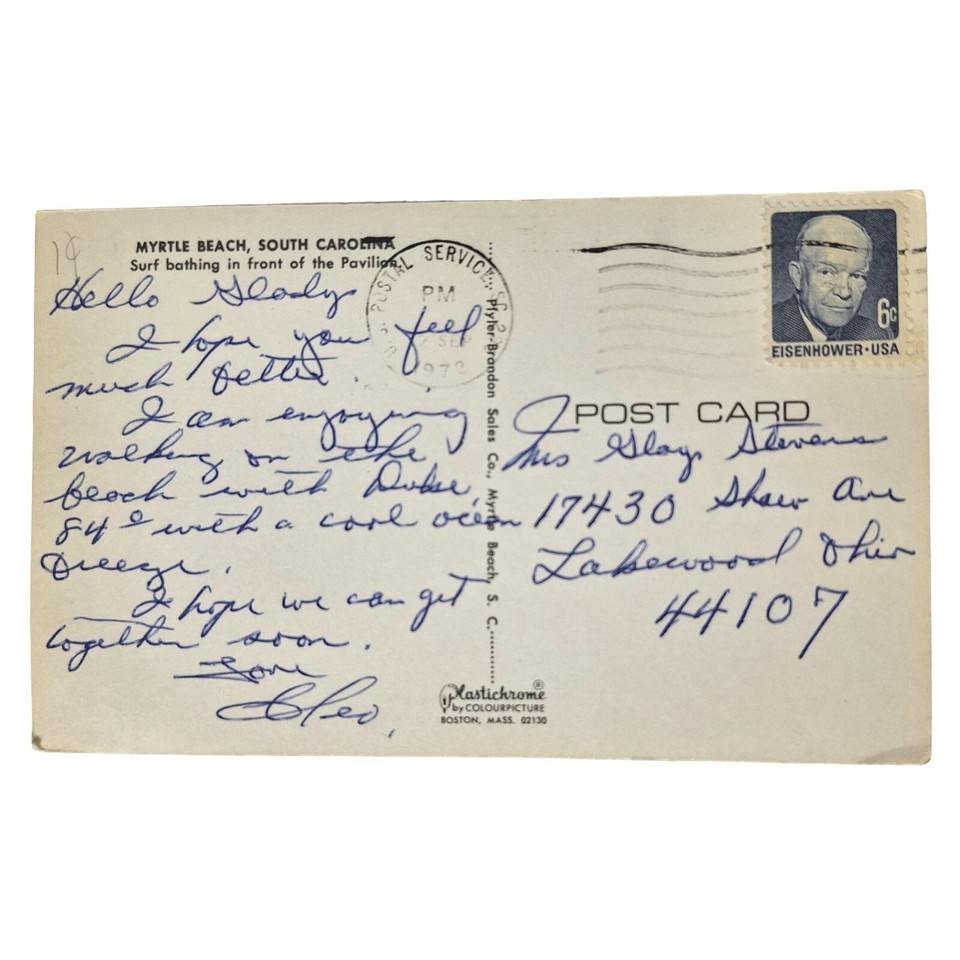 1¢
MYRTLE BEACH, SOUTH CAROLINA
Surf bathing in front of the Pavilion.
Hello Glady
I hope you feel
much better.
I am enjoying
walking on the
beach with Duke,
84° with a cool ocean
breeze.
I hope we can get
together soon.
Love
Cleo,
U.S. POSTAL SERVICE, SC
PM
2 SEP
1972
Plyler-Brandon Sales Co., Myrtle Beach, S. C.
6c
EISENHOWER · USA
POST CARD
Mrs Glays Stevens
17430 Shaw Ave
Lakewood Ohio
44107
Plastichrome
by COLOURPICTURE
BOSTON, MASS. 02130